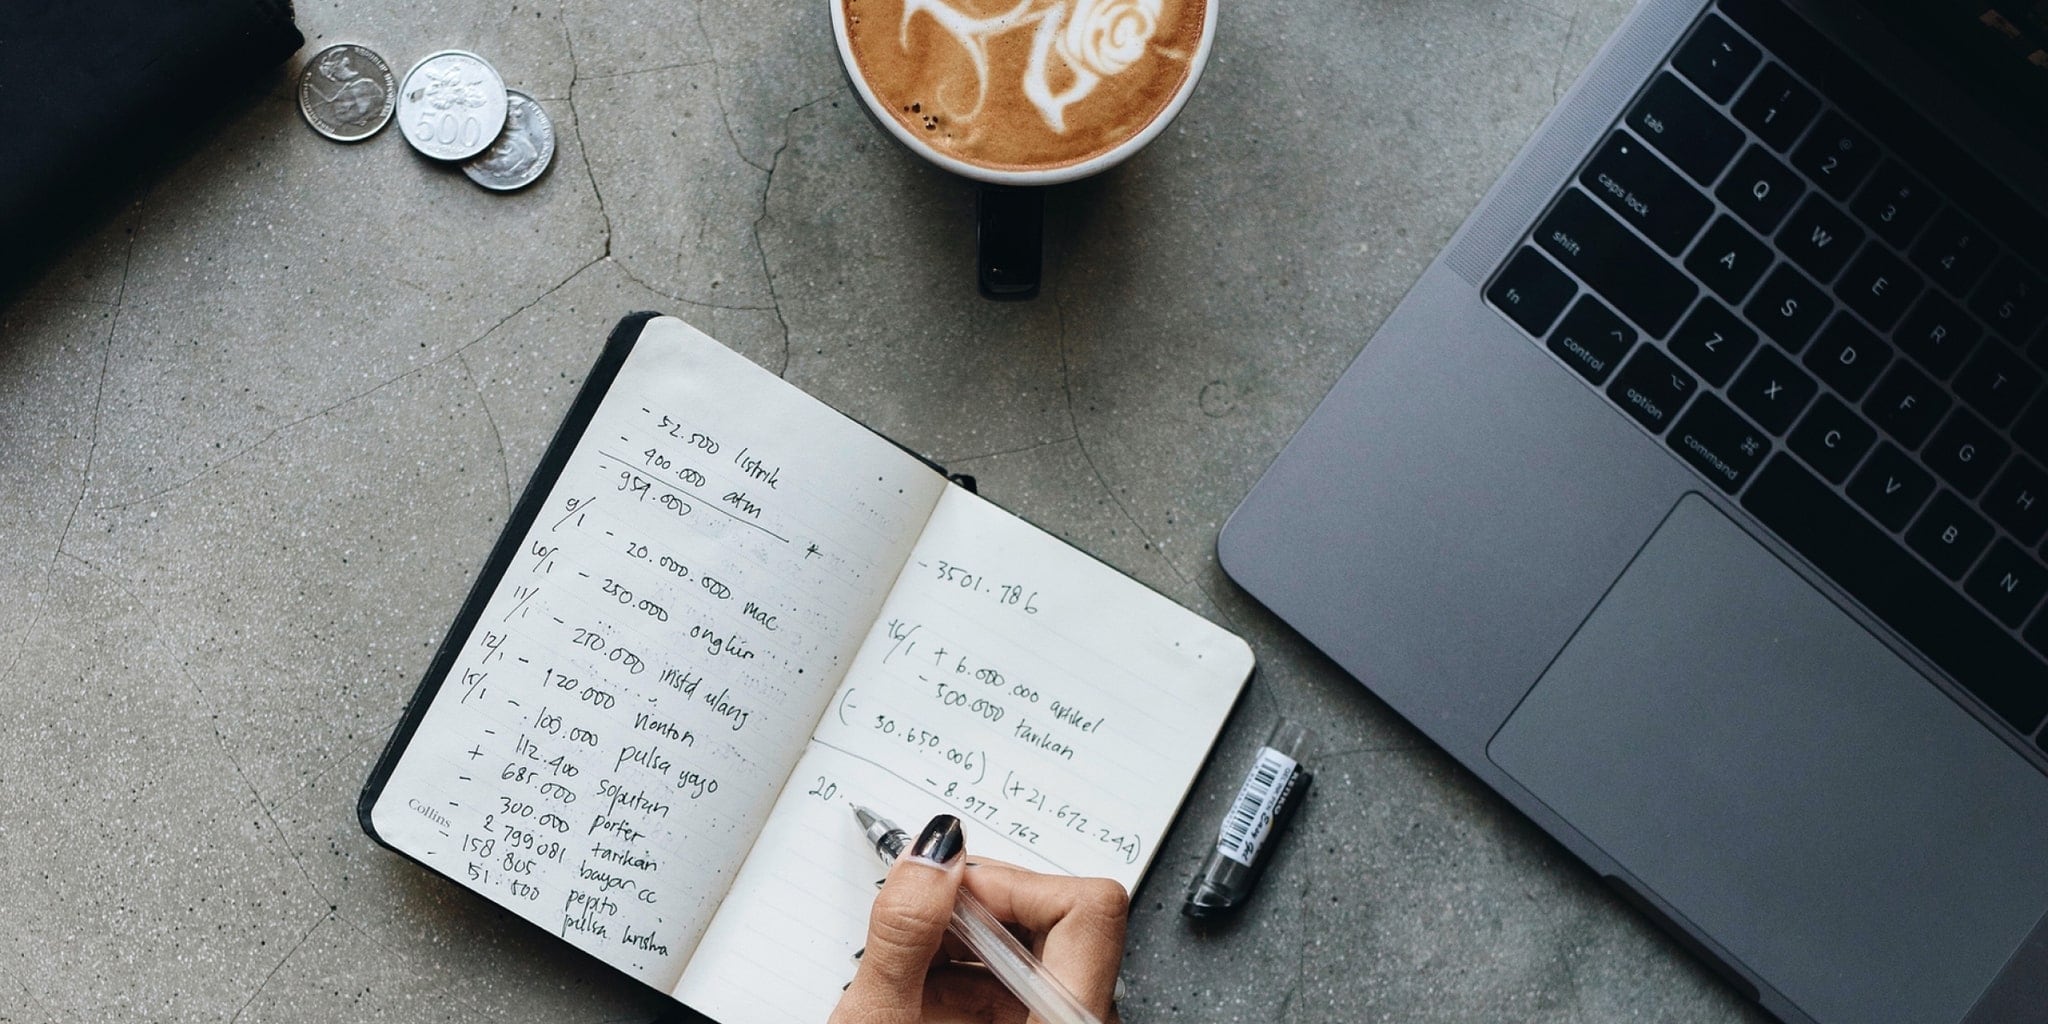 500
- 52.500 listrik
- 900.000 atm
- 959.000
+
9/1 - 20.000.000 mac
10/1 - 250.000 ongkir
11/1 - 270.000 insta ulang
12/1 - 120.000 nonton
15/1 - 109.000 pulsa yogo
- 112.400 soputan
+ 685.000 porter
- 300.000 tarikan
- 2 799.081 bayar cc
- 158.805 pepito
- 51.500 pulsa krisha
Collins
- 3501.786
16/1 + 6.000.000 artikel
- 500.000 tarikan
(- 30.650.006) (+ 21.672.244)
- 8.977.762
20.
~ `
! 1
@ 2
# 3
$ 4
5
tab Q W E R T
caps lock A S D F G H
shift Z X C V B N
fn control option command